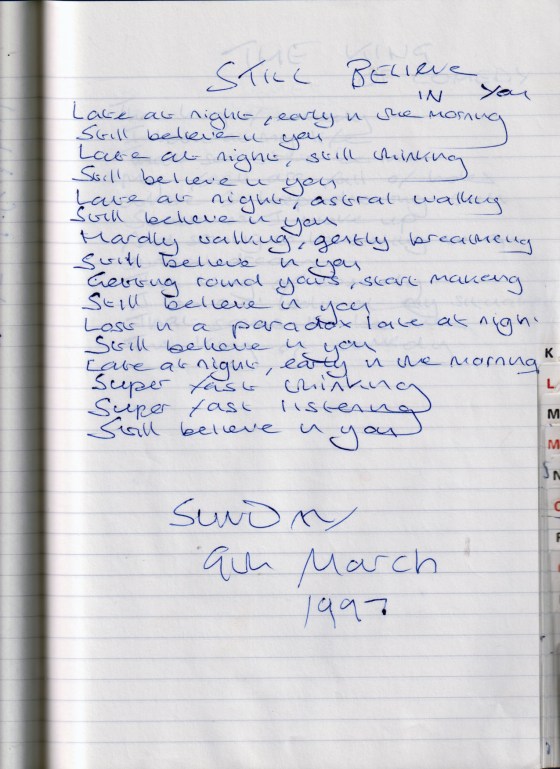 STILL BELIEVE
IN You
Late at night, early in the morning
Still believe in you
Late at night, still thinking
Still believe in you
Late at night, astral walking
Still believe in you
Hardly walking, gently breathing
Still believe in you
Getting round yours, start making
Still believe in you
Lost in a paradox late at night
Still believe in you
Late at night, early in the morning
Super fast thinking
Super fast listening
Still believe in you
SUNDAY
9th March
1997
K
L
M
M
N